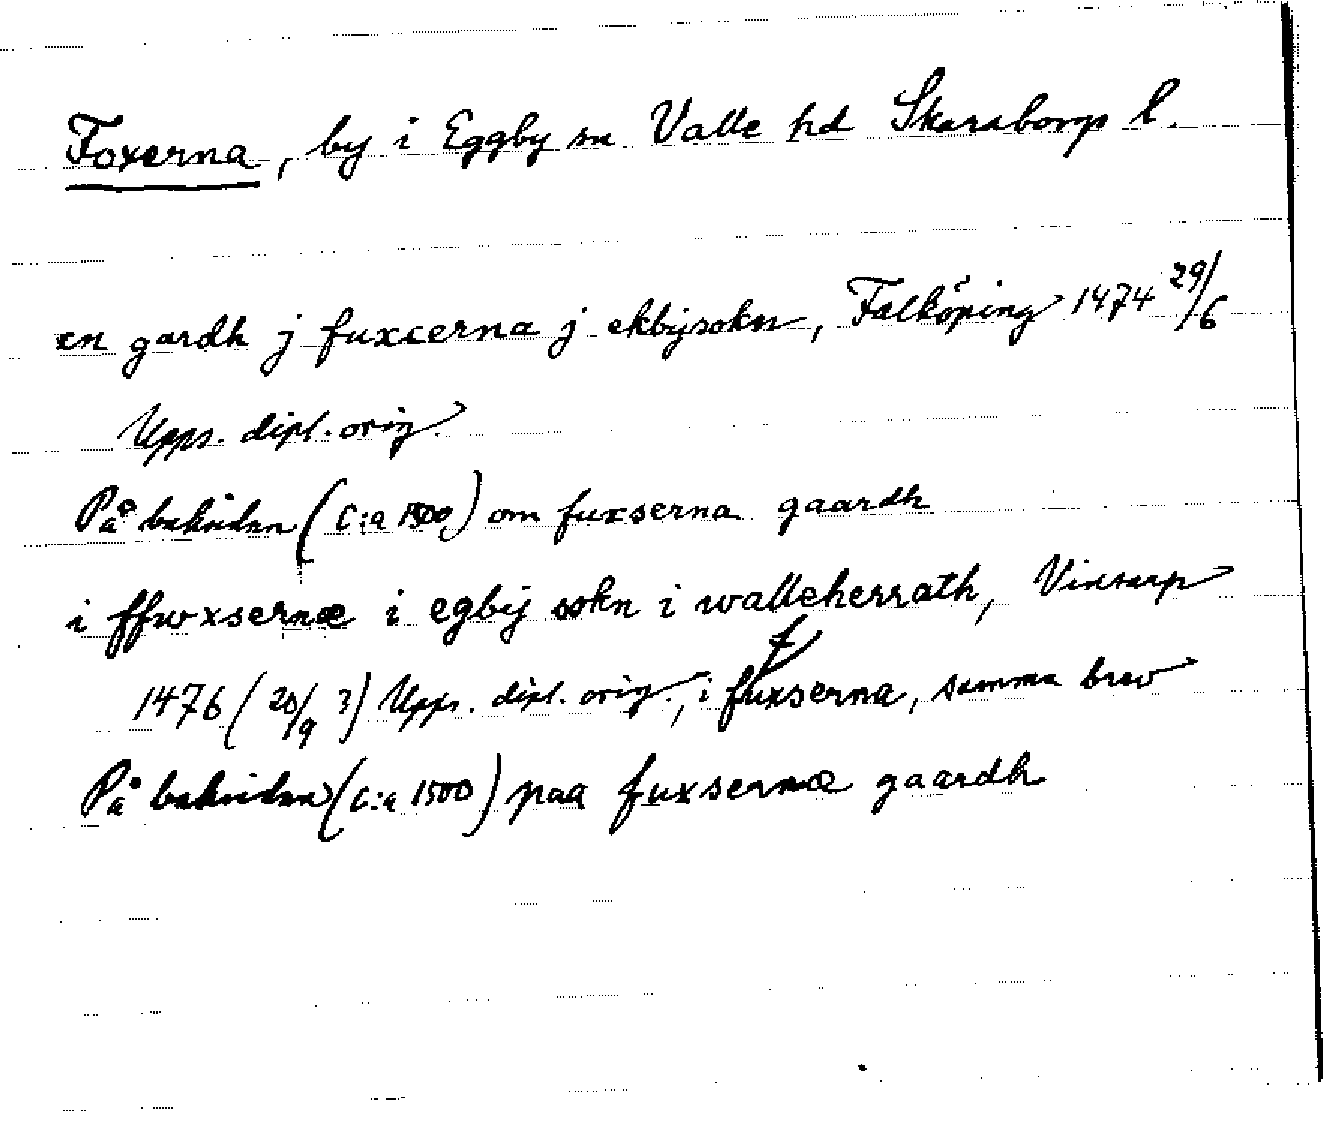 Foxerna, by i Eggby sn Valle hd Skaraborgs l.
en gardh j fuxcerna j ekbysokn, Falköping 1474 29/6
Upps. dipl. orig.
På baksidan (C:a 1500) om fuxserna gaardh
i ffwxsernæ i egbij sokn i walleherrath, Vinstorp
1476 (20/9 ?) Upps. dipl. orig., i fuxserna, samma brev
På baksidan (C:a 1500) paa fuxsernæ gaardh